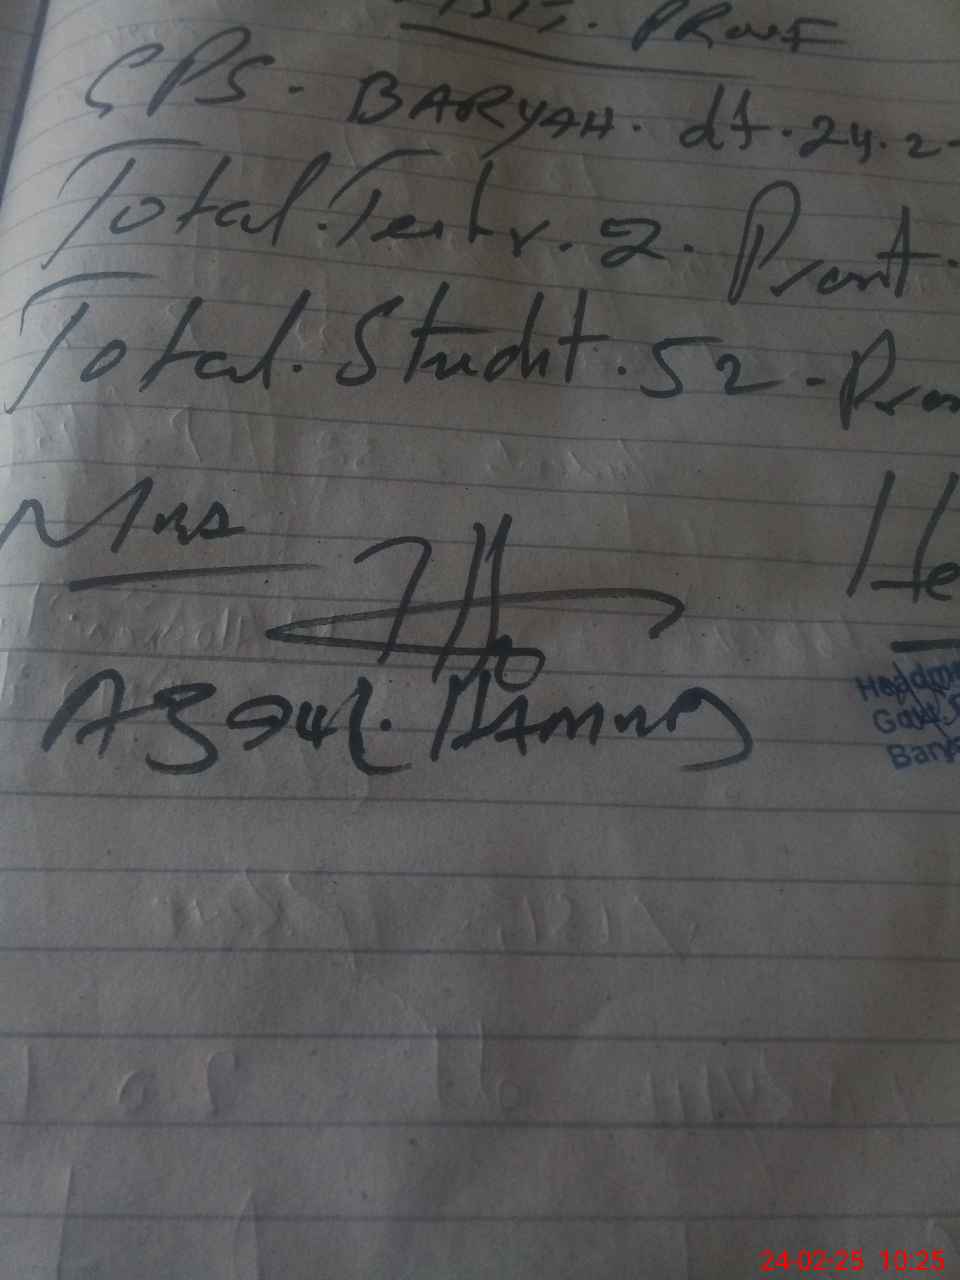 PROOF
GPS. BARYAH. dt. 24.2-
Total. Teachr. 2. Prsnt.
Total. Studnt. 52 - Prsn
Mrs
He
Afzaul.
Headm
Govt.
Bary
24-02-25 10:25